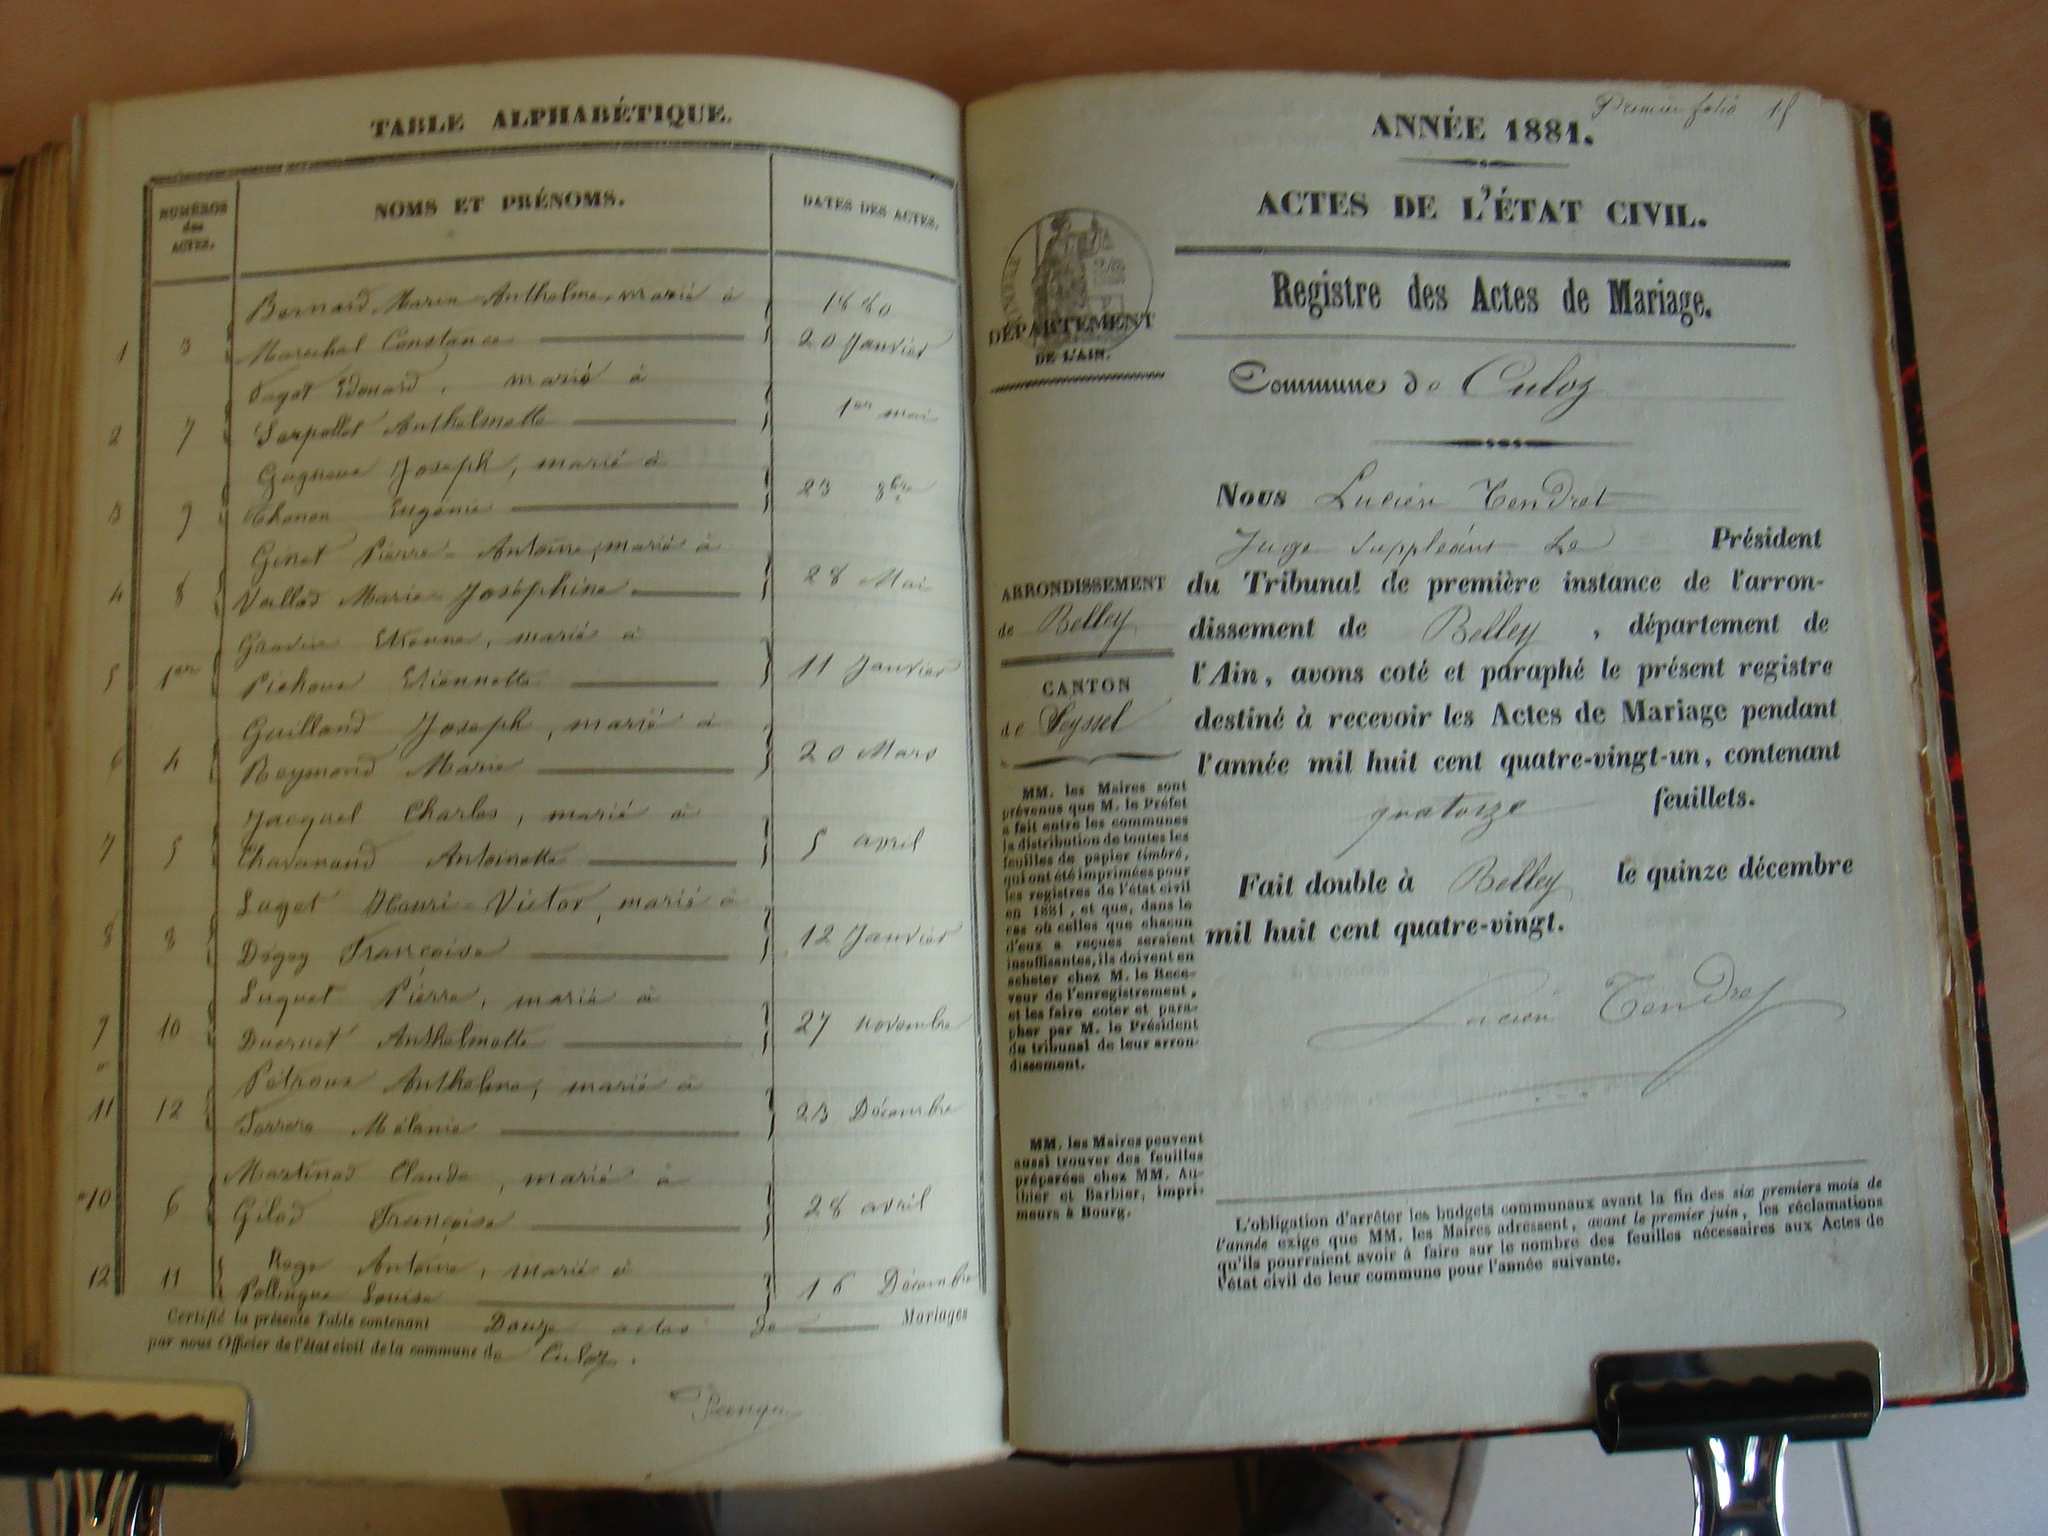 TABLE ALPHABÉTIQUE.
NUMÉROS
des
ACTES.
NOMS ET PRÉNOMS.
DATES DES ACTES.
Bernard Marie Anthelme, marié à
1880
1 3 Marechal Constance
20 Janvier
Édouard, marié à
2 7 Serpollet Anthelmette
1er mai
Joseph, marié à
3 9 Eugénie
23 8bre
Ginet Pierre-Antoine, marié à
4 8 Vallod Marie Joséphine
28 Mai
Étienne, marié à
5 1er Étiennette
11 Janvier
Guilland Joseph, marié à
6 4 Reymond Marie
20 Mars
Jacquel Charles, marié à
7 5 Chavanand Antoinette
5 avril
Henri-Victor, marié à
8 8 Françoise
12 Janvier
Luquet Pierre, marié à
9 10 Ducruet Anthelmette
27 novembre
Pétroux Anthelme, marié à
11 12 Mélanie
23 Décembre
Martinod Claude, marié à
10 6 Gilod Françoise
28 avril
Antoine, marié à
12 11 Louise
16 Décembre
Certifié la présente Table contenant Douze actes de Mariages
par nous Officier de l'état civil de la commune de Culoz.
Premier folio
ANNÉE 1881.
ACTES DE L'ÉTAT CIVIL.
Registre des Actes de Mariage.
DÉPARTEMENT
DE L'AIN.
Commune de Culoz
Nous Lucien Tendret
Juge suppléant Le Président
du Tribunal de première instance de l'arron-
dissement de Belley, département de
l'Ain, avons coté et paraphé le présent registre
destiné à recevoir les Actes de Mariage pendant
l'année mil huit cent quatre-vingt-un, contenant
quatorze feuillets.
Fait double à Belley le quinze décembre
mil huit cent quatre-vingt.
Lucien Tendret
ARRONDISSEMENT
de Belley
CANTON
de Seyssel
MM. les Maires sont
prévenus que M. le Préfet
a fait entre les communes
la distribution de toutes les
feuilles de papier timbré,
qui ont été imprimées pour
les registres de l'état civil
en 1881, et que, dans le
cas où celles que chacun
d'eux a reçues seraient
insuffisantes, ils doivent en
acheter chez M. le Rece-
veur de l'enregistrement,
et les faire coter et para-
pher par M. le Président
du tribunal de leur arron-
dissement.
MM. les Maires peuvent
aussi trouver des feuilles
préparées chez MM. Au-
thier et Barbier, impri-
meurs à Bourg.
L'obligation d'arrêter les budgets communaux avant la fin des six premiers mois de
l'année exige que MM. les Maires adressent, avant le premier juin, les réclamations
qu'ils pourraient avoir à faire sur le nombre des feuilles nécessaires aux Actes de
l'état civil de leur commune pour l'année suivante.